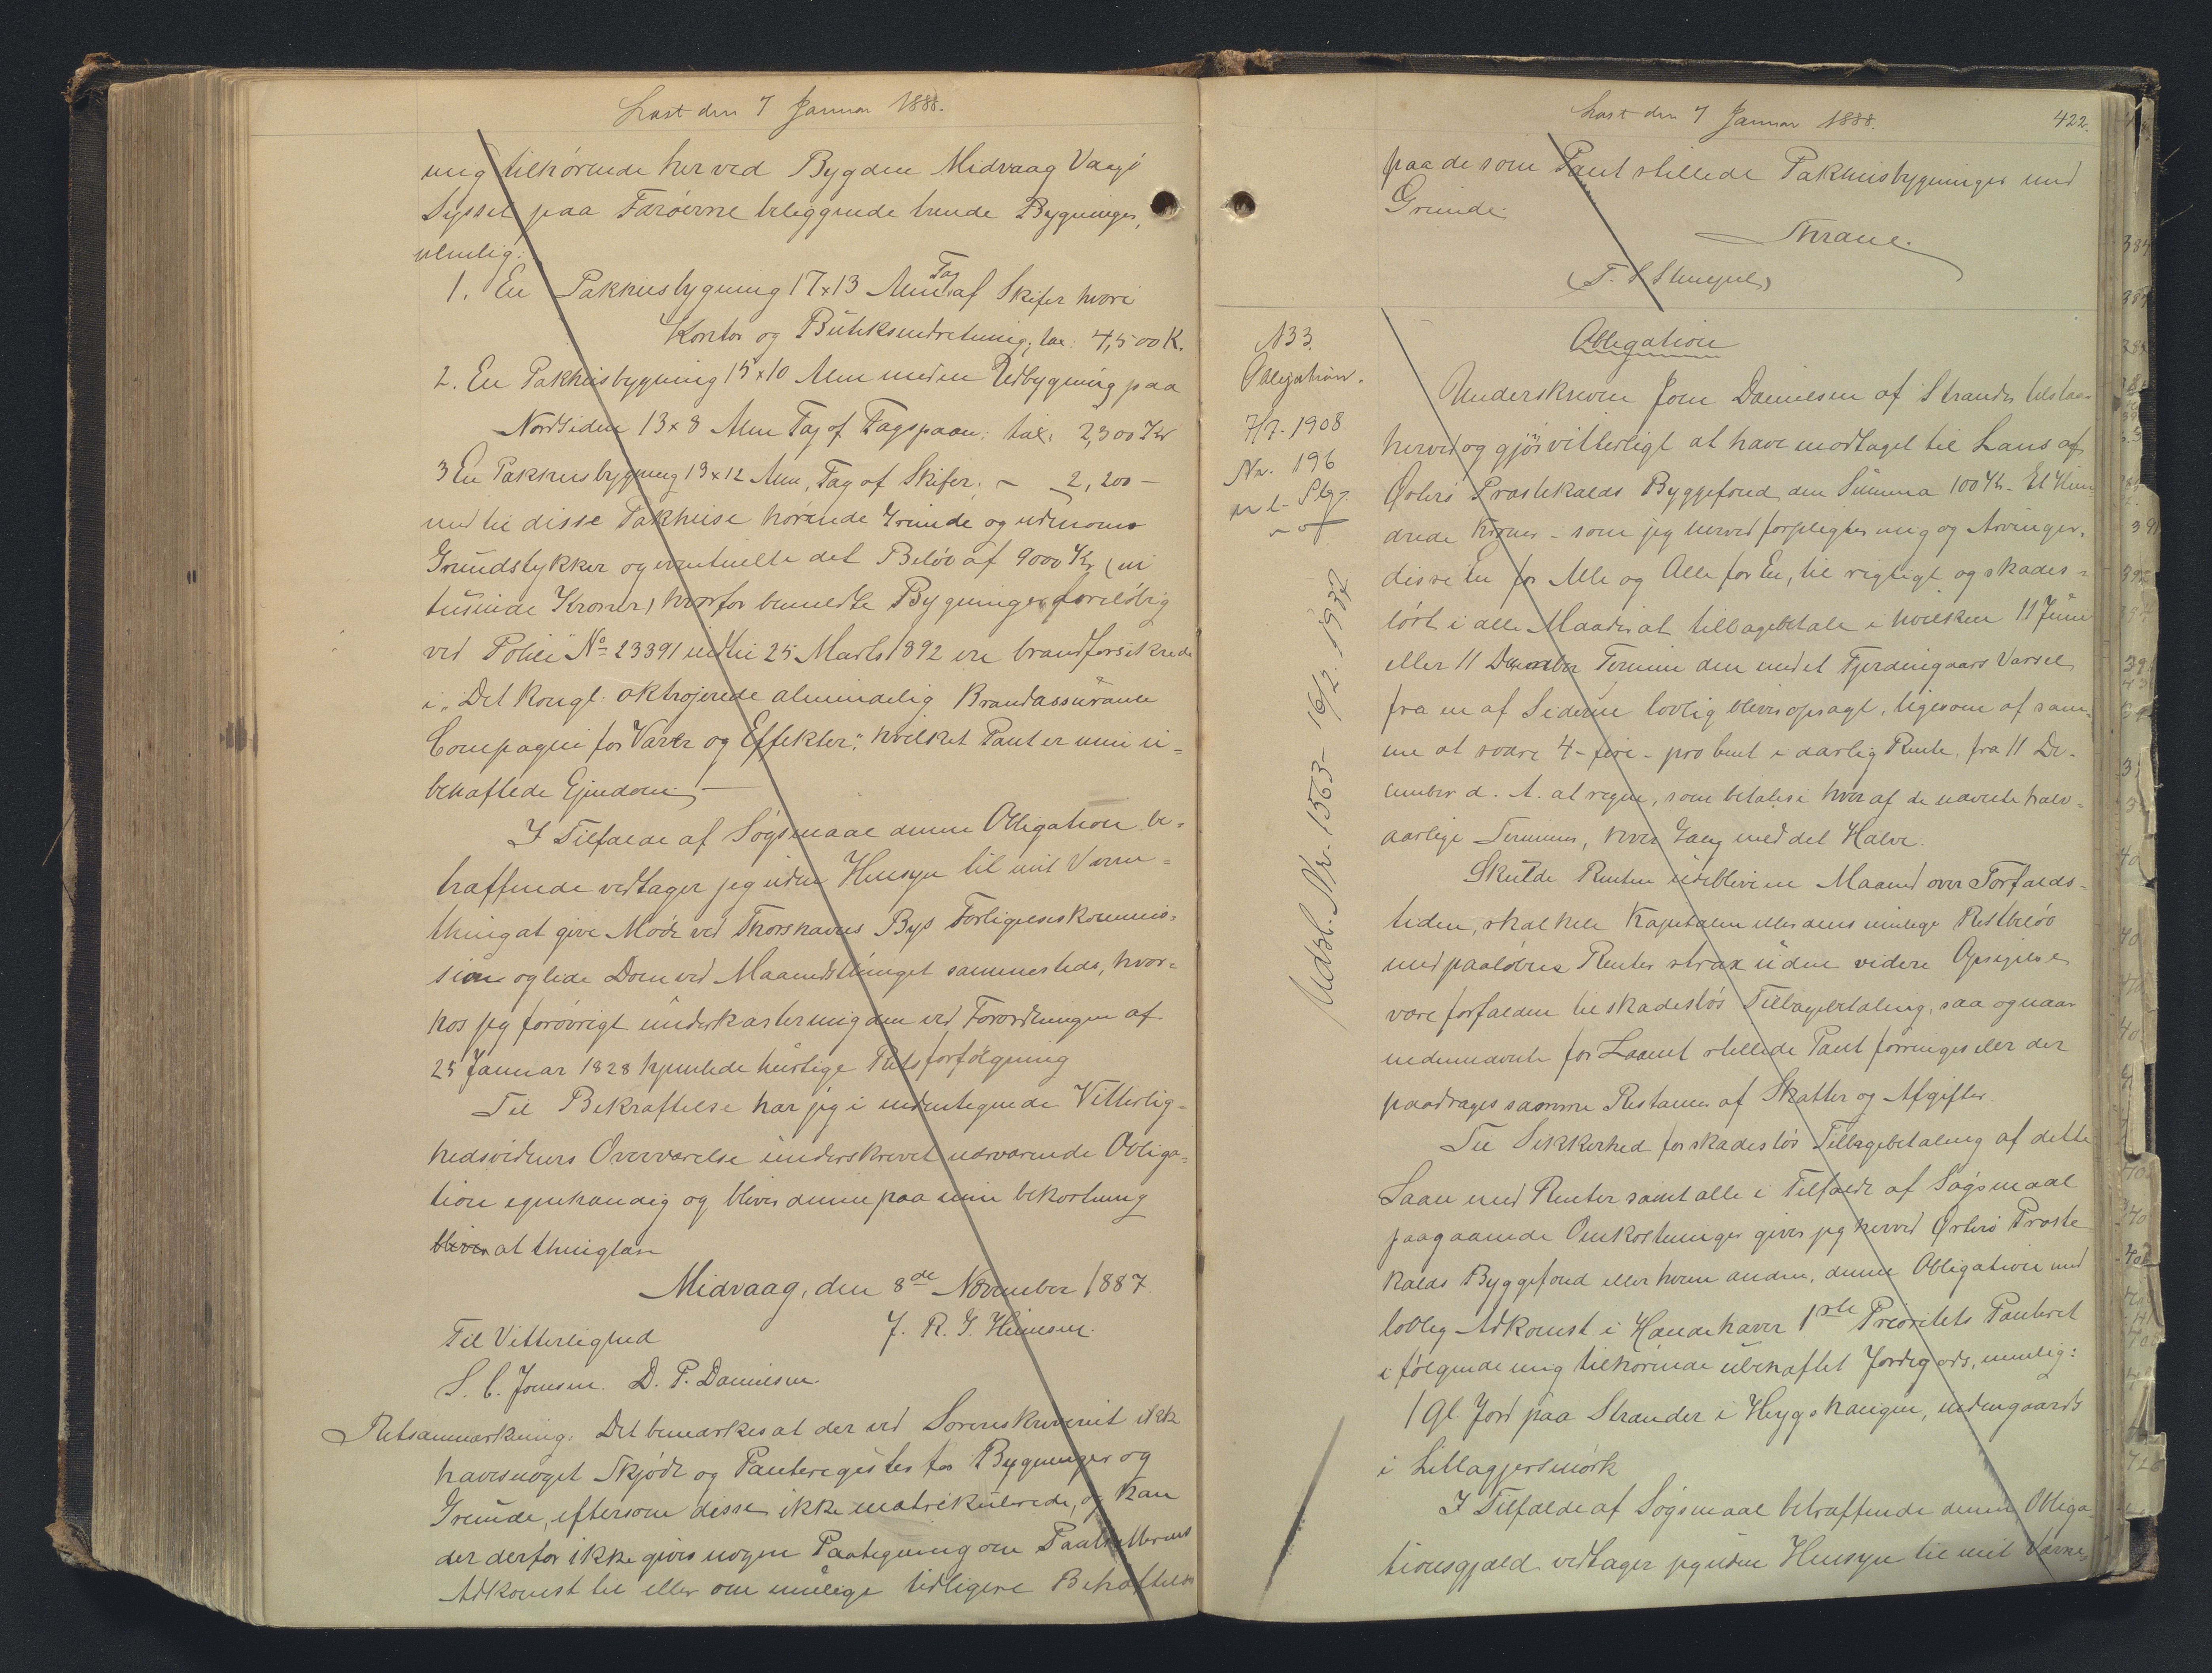 Læst den 7 Januar 1888.
mig tilhørende her ved Bygden Midvaag Vaagø
Syssel paa Færøerne beliggende trende Bygninger,
nemlig:
1. En Pakhusbygning 17 x 13 Alen Tag af Skifer hvori
Kontor og Butiksindretning; tax: 4,500 K.
2. En Pakhusbygning 15 x 10 Alen med en Udbygning paa
Nordsiden 13 x 8 Alen Tag af Tagspaan; tax: 2,300 Kr
3 En Pakhusbygning 13 x 12 Alen, Tag af Skifer; - 2,200 -
med til disse Pakhuse hørende Grunde og udenoms
Grundstykker og eventuelle det Beløb af 9000 Kr (ni
tusinde Kroner) hvorfor bemeldte Bygninger foreløbig
ved Police No 23391 indtil 25 Marts 1892 ere brandforsikrede
i "Det kongl: oktrojerede almindelig Brandassurance
Compagni for Varer og Effekter", hvilket Pant er min u=
behæftede Ejendom. -
I Tilfælde af Søgsmaal denne Obligation be=
træffende vedtager jeg uden Hensyn til mit Værne=
thing at give Møde ved Thorshavns Bys Forligelseskommis=
sion og lide Dom ved Maanedsthinget sammesteds, hvor=
hos jeg forøvrigt underkaster mig den ved Forordningen af
25 Januar 1828 hjemlede hurtige Retsforfølgning
Til Bekræftelse har jeg i undertegnede Vitterlig=
hedsvidners Overværelse underskrevet nærværende Obliga=
tion egenhændig og bliver denne paa min bekostning
bliver at thinglæse
Midvaag, den 8de November 1887.
Til Vitterlighed J. R. G. Heinesen.
S. C. Joensen. D. P. Danielsen.
Retsanmærkning: Det bemærkes at der ved Sorenskriveriet ikke
haves noget Skjøde og Panteregister for Bygninger og
Grunde, eftersom disse ikke matrikulerede, og kan
der derfor ikke gives nogen Paategning om Pantsætterens
Adkomst til eller om mulige tidligere Behæftelser
Læst den 7 Januar 1888. 422.
paa de som Pant stillede Pakhusbygninger med
Grunde
Thrane.
(T. S Stempel)
N 33.
Obligation.
7/7- 1908
Nr. 196
Udsl. Nr. 1563- 16/2. 1932
Obligation
Underskreven Joen Danielsen af Strander tilstaar
herved og gjør vitterligt at have modtaget til Laans af
Østerø Præstekalds Byggefond den Summa 100 Kr. - Et Hun=
drede Kroner - som jeg herved forpligter mig og Arvinger,
disse En for Alle og Alle for En, til rigtigt og skades=
løst i alle Maader at tilbagebetale i hvilken 11 Juni
eller 11 December Termin den med et Fjerdingaars Varsel
fra en af Siderne lovlig bliver opsagt, ligesom af sam=
me at svare 4 - fire - pro Cent i aarlig Rente, fra 11 De=
cember d. A. at regne, som betales i hver af de nævnte halv=
aarlige Terminer, hver Gang med det Halve.
Skulde Renten udeblive en Maaned over Forfalds=
tiden, skal hele Kapitalen eller dens mulige Restbeløb
med paaløbne Renter strax uden videre Opsigelse
være forfalden til skadesløs Tilbagebetaling, saa og naar
nedennævnte for Laanet stillede Pant forringes eller der
paadrages samme Restancer af Skatter og Afgifter.
Til Sikkerhed for skadesløs Tilbagebetaling af dette
Laan med Renter samt alle i Tilfælde af Søgsmaal
paagaaende Omkostninger giver jeg herved Østerø Præste=
kalds Byggefond eller hvem anden, denne Obligation med
lovlig Adkomst i Hænde haver 1ste Prioritets Panteret
i følgende mig tilhørende ubehæftet Jordegods, nemlig:
1 Gl Jord paa Strander i Heygshaugen, indengaards
i Litlagjersmørk
I Tilfælde af Søgsmaal betræffende denne Obliga=
tionsgjæld vedtager jeg uden Hensyn til mit Værne=